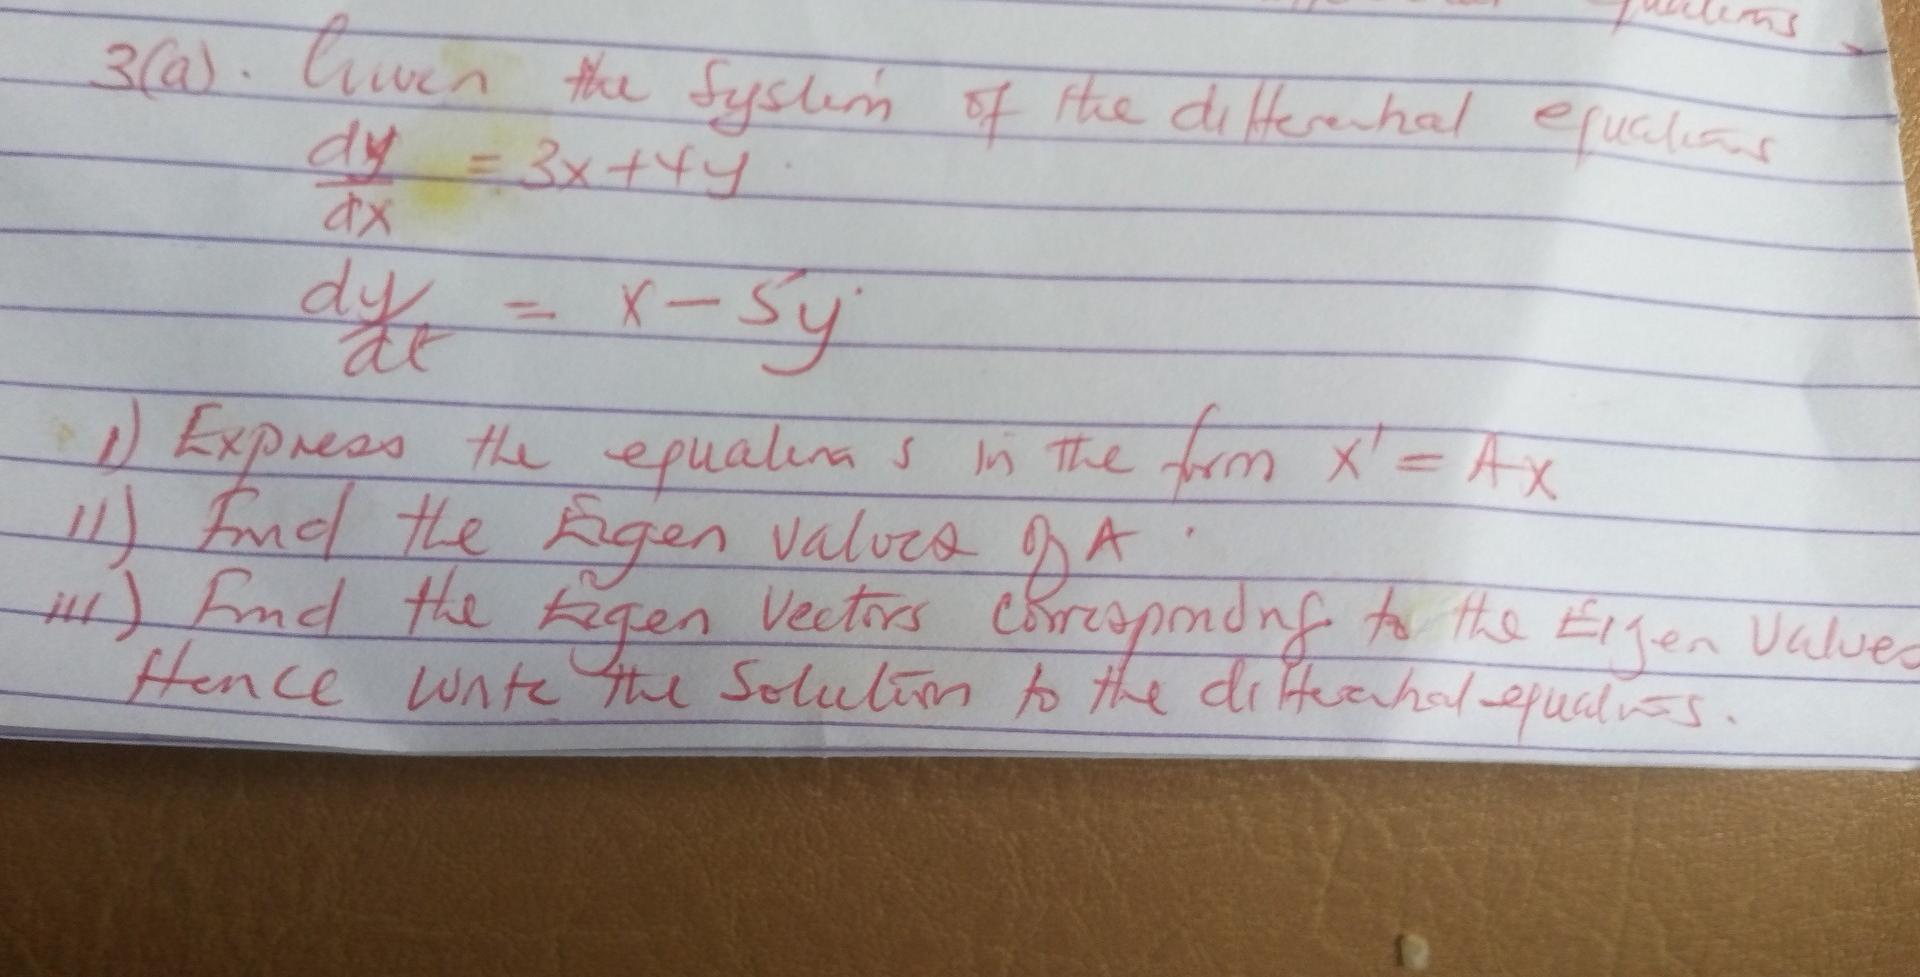 equations
3(a). Given the System of the differential equations
dy/dx = 3x+4y
dy/dt = x-5y
i) Express the equations in the form x' = Ax
ii) Find the Eigen values of A.
iii) Find the Eigen Vectors corresponding to the Eigen Values
Hence write the Solution to the differential equations.